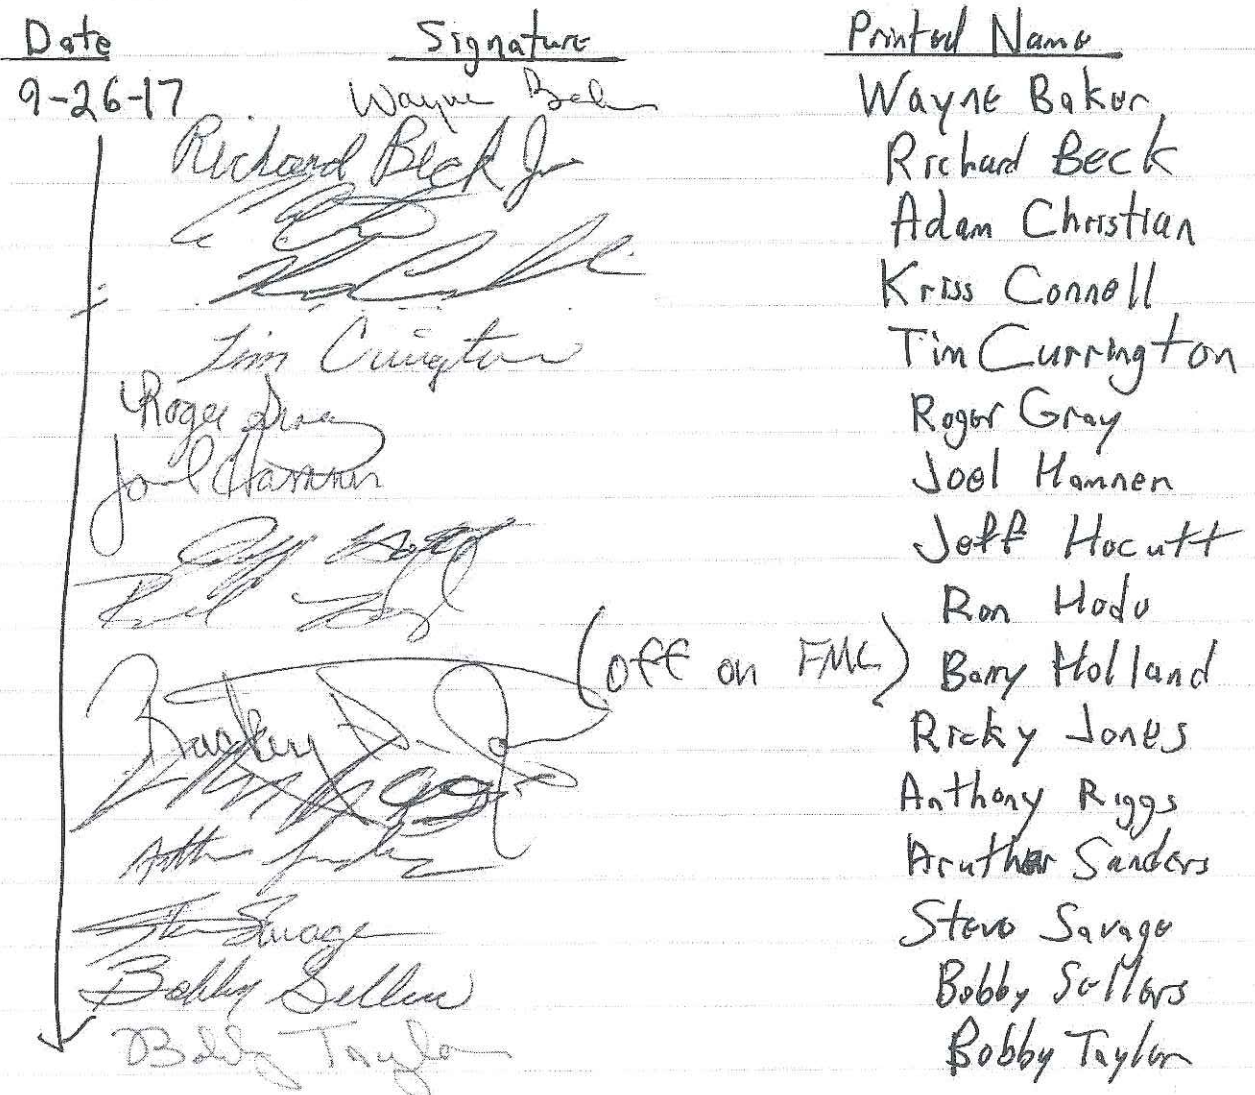 Date Signature Printed Name
9-26-17 Wayne Baker Wayne Baker
Richard Beck Jr Richard Beck
Adam Christian
Kriss Connell
Tim Currington Tim Currington
Roger Gray Roger Gray
Joel Hamnen Joel Hamnen
Jeff Hocutt
Ron
(off on FMC) Barry Holland
Ricky Jones
Anthony Riggs
Sanders
Steve Savage Steve Savage
Bobby Sellers Bobby Sellers
Bobby Taylor Bobby Taylor